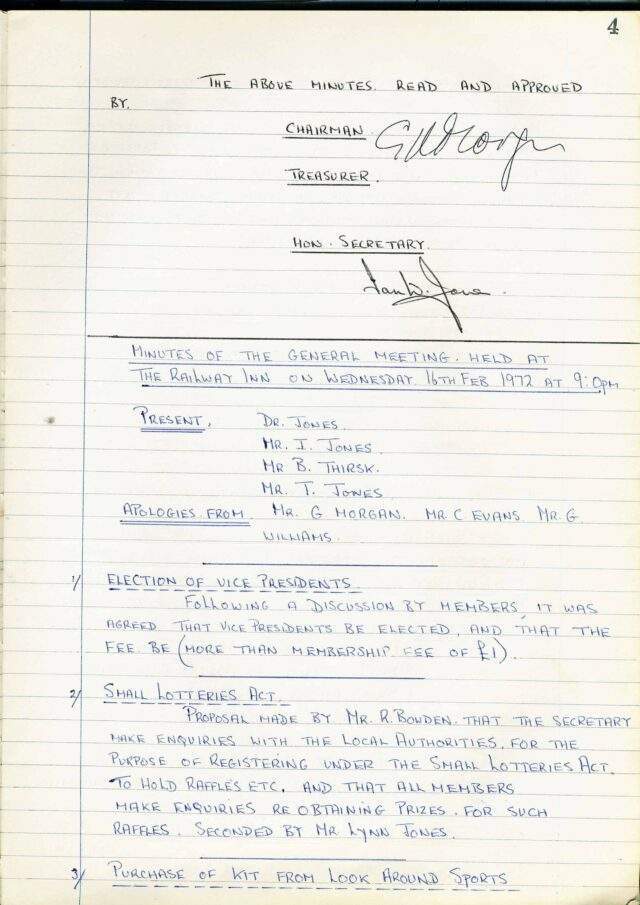 4
THE ABOVE MINUTES. READ AND APPROVED
BY.
CHAIRMAN
TREASURER.
HON. SECRETARY.
Ian W. Jones.
MINUTES OF THE GENERAL MEETING. HELD AT
THE RAILWAY INN ON WEDNESDAY 16TH FEB 1972 AT 9:0PM
PRESENT. DR. JONES.
MR. I. JONES.
MR B. THIRSK.
MR. T. JONES
APOLOGIES FROM MR. G MORGAN. MR C EVANS MR. G
WILLIAMS.
1/ ELECTION OF VICE PRESIDENTS.
FOLLOWING A DISCUSSION BY MEMBERS, IT WAS
AGREED THAT VICE PRESIDENTS BE ELECTED, AND THAT THE
FEE BE (MORE THAN MEMBERSHIP FEE OF £1).
2/ SMALL LOTTERIES ACT.
PROPOSAL MADE BY MR. R. BOWDEN. THAT THE SECRETARY
MAKE ENQUIRIES WITH THE LOCAL AUTHORITIES. FOR THE
PURPOSE OF REGISTERING UNDER THE SMALL LOTTERIES ACT.
TO HOLD RAFFLES ETC. AND THAT ALL MEMBERS
MAKE ENQUIRIES RE OBTAINING PRIZES. FOR SUCH
RAFFLES. SECONDED BY MR LYNN JONES.
3/ PURCHASE OF KIT FROM LOOK AROUND SPORTS